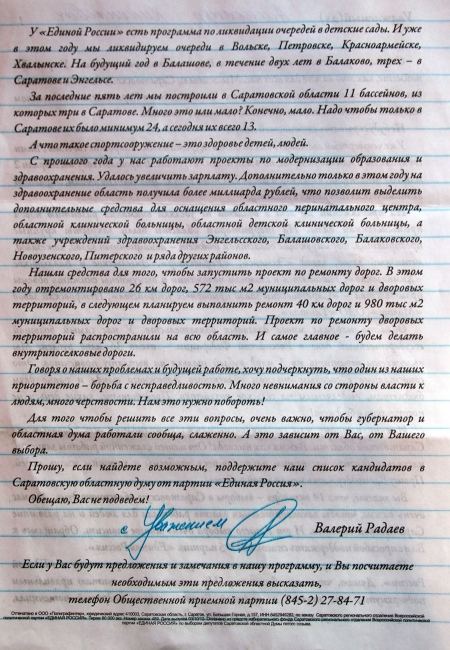 У «Единой России» есть программа по ликвидации очередей в детские сады. И уже
в этом году мы ликвидируем очереди в Вольске, Петровске, Красноармейске,
Хвалынске. На будущий год в Балашове, в течение двух лет в Балаково, трех – в
Саратове и Энгельсе.
За последние пять лет мы построили в Саратовской области 11 бассейнов, из
которых три в Саратове. Много это или мало? Конечно, мало. Надо чтобы только в
Саратове их было минимум 24, а сегодня их всего 13.
А что такое спортсооружение – это здоровье детей, людей.
С прошлого года у нас работают проекты по модернизации образования и
здравоохранения. Удалось увеличить зарплату. Дополнительно только в этом году на
здравоохранение область получила более миллиарда рублей, что позволит выделить
дополнительные средства для оснащения областного перинатального центра,
областной клинической больницы, областной детской клинической больницы, а
также учреждений здравоохранения Энгельсского, Балашовского, Балаковского,
Новоузенского, Питерского и ряда других районов.
Нашли средства для того, чтобы запустить проект по ремонту дорог. В этом
году отремонтировано 26 км дорог, 572 тыс м2 муниципальных дорог и дворовых
территорий, в следующем планируем выполнить ремонт 40 км дорог и 980 тыс м2
муниципальных дорог и дворовых территорий. Проект по ремонту дворовых
территорий распространили на всю область. И самое главное - будем делать
внутрипоселковые дороги.
Говоря о наших проблемах и будущей работе, хочу подчеркнуть, что один из наших
приоритетов – борьба с несправедливостью. Много невнимания со стороны власти к
людям, много черствости. Нам это нужно побороть!
Для того чтобы решить все эти вопросы, очень важно, чтобы губернатор и
областная дума работали сообща, слаженно. А это зависит от Вас, от Вашего
выбора.
Прошу, если найдете возможным, поддержите наш список кандидатов в
Саратовскую областную думу от партии «Единая Россия».
Обещаю, Вас не подведем!
с Уважением Валерий Радаев
Если у Вас будут предложения и замечания в нашу программу, и Вы посчитаете
необходимым эти предложения высказать,
телефон Общественной приемной партии (845-2) 27-84-71